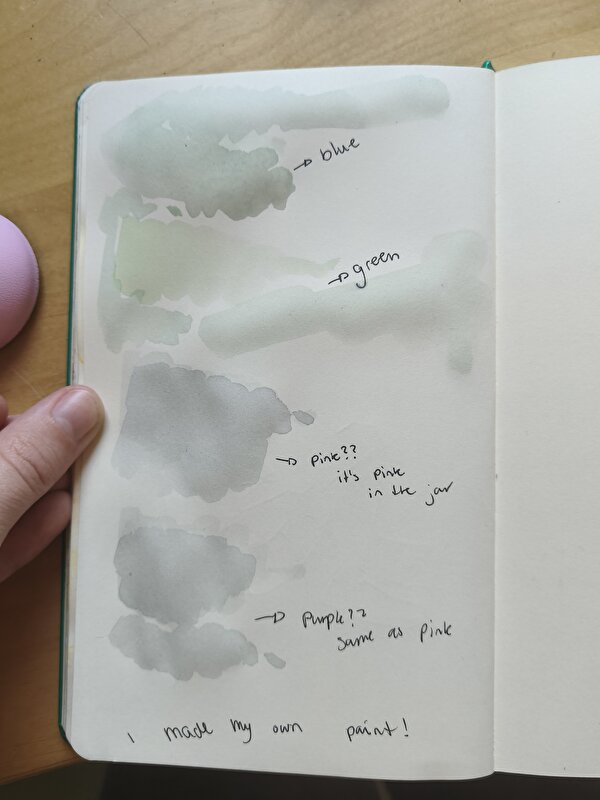 → blue
→ green
→ pink??
it's pink
in the jar
→ Purple??
same as pink
I made my own paint!